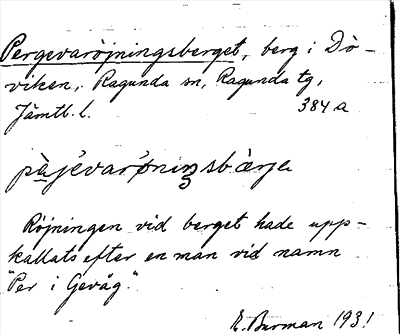 Pergevaröjningsberget, berg i Dö-
viken, Ragunda sn, Ragunda tg,
Jämtl. l. 384 a
pàj́evarö́niŋsbàrje
Röjningen vid berget hade upp-
kallats efter en man vid namn
"Per i Gevåg".
E. Burman 1931